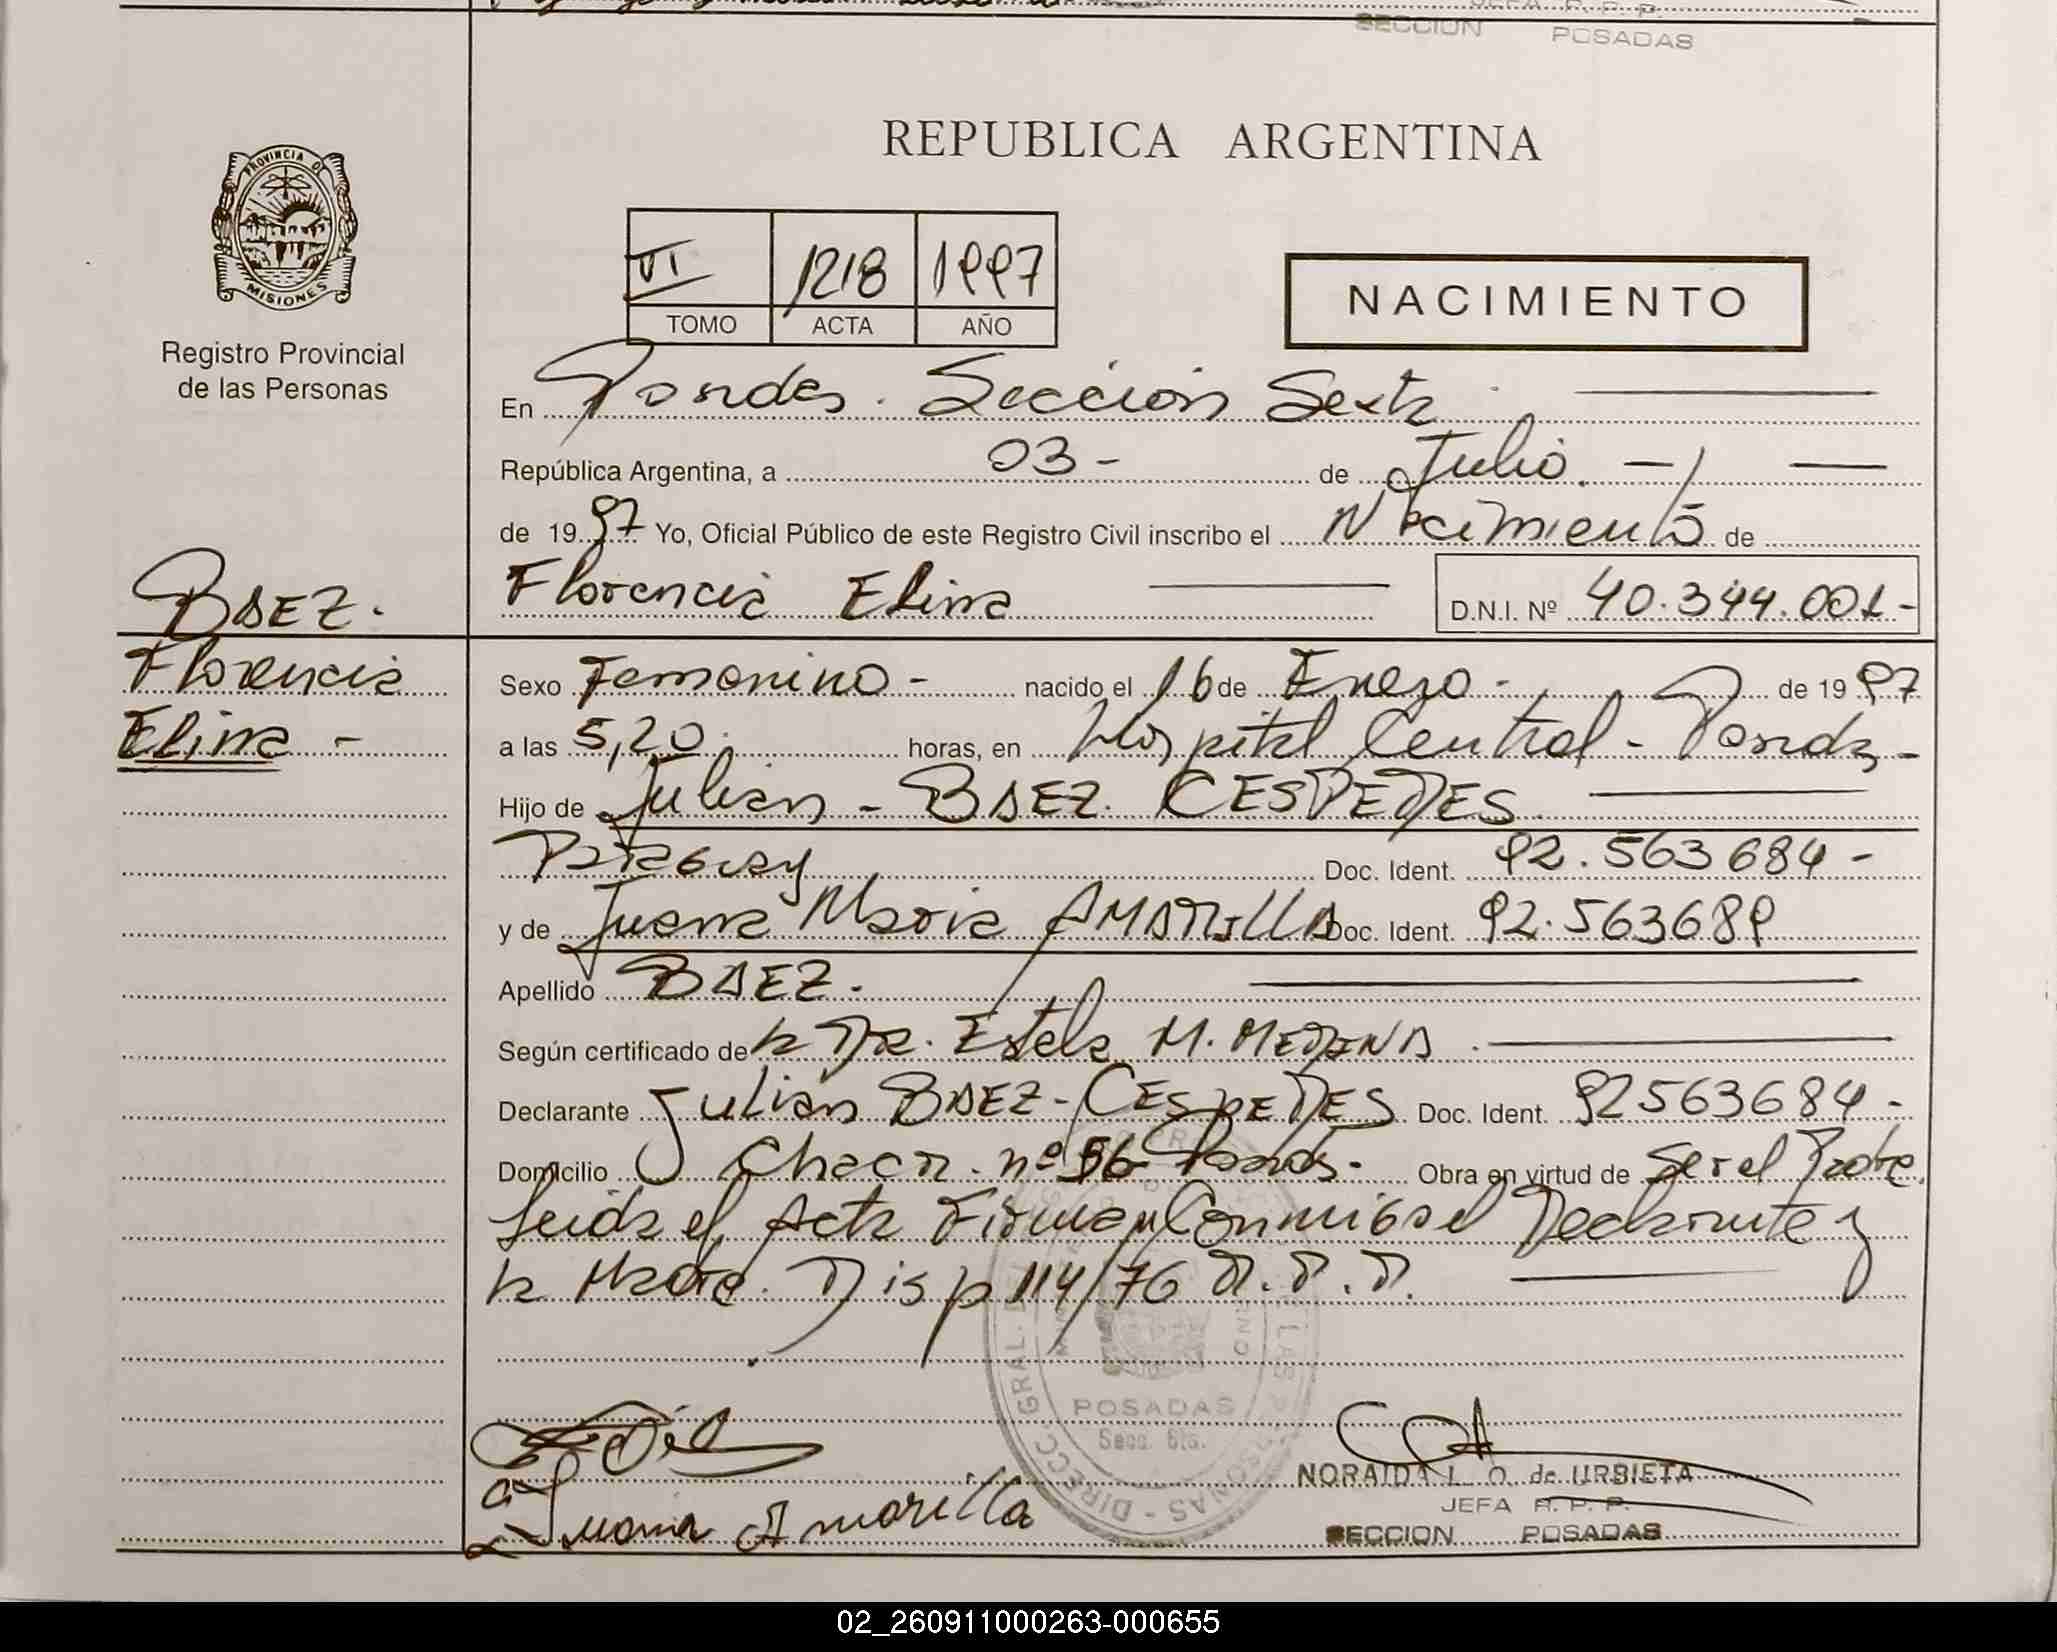 JEFA R. P. P.
SECCION POSADAS
REPUBLICA ARGENTINA
PROVINCIA DE
MISIONES
Registro Provincial
de las Personas
VI 1218 1997
TOMO ACTA AÑO
NACIMIENTO
En Posadas. Sección Sexta
República Argentina, a 03- de Julio.
de 1997 Yo, Oficial Público de este Registro Civil inscribo el Nacimiento de
Florencia Elina D.N.I. Nº 40.344.001-
BAEZ.
Florencia
Elina -
Sexo Femenino - nacido el 16 de Enero - de 1997
a las 5,20. horas, en Hospital Central - Posadas -
Hijo de Julian - BAEZ. CESPEDES
Paraguay Doc. Ident. 92.563684 -
y de Juana Maria AMARILLA Doc. Ident. 92.563689
Apellido BAEZ.
Según certificado de la Dra. Estela M. MEDINA.
Declarante Julian BAEZ - CESPEDES Doc. Ident. 92563684 -
Domicilio Chacra. nº 56 Posadas. Obra en virtud de Ser el Padre.
Leida el Acta Firman Conmigo el Declarante y
la Madre. Disp 114/76 R.P.P.
POSADAS
Secc. 6ta.
Juana Amarilla
NORAIDA L. O. de URBIETA
JEFA R. P. P.
SECCION POSADAS
02_260911000263-000655